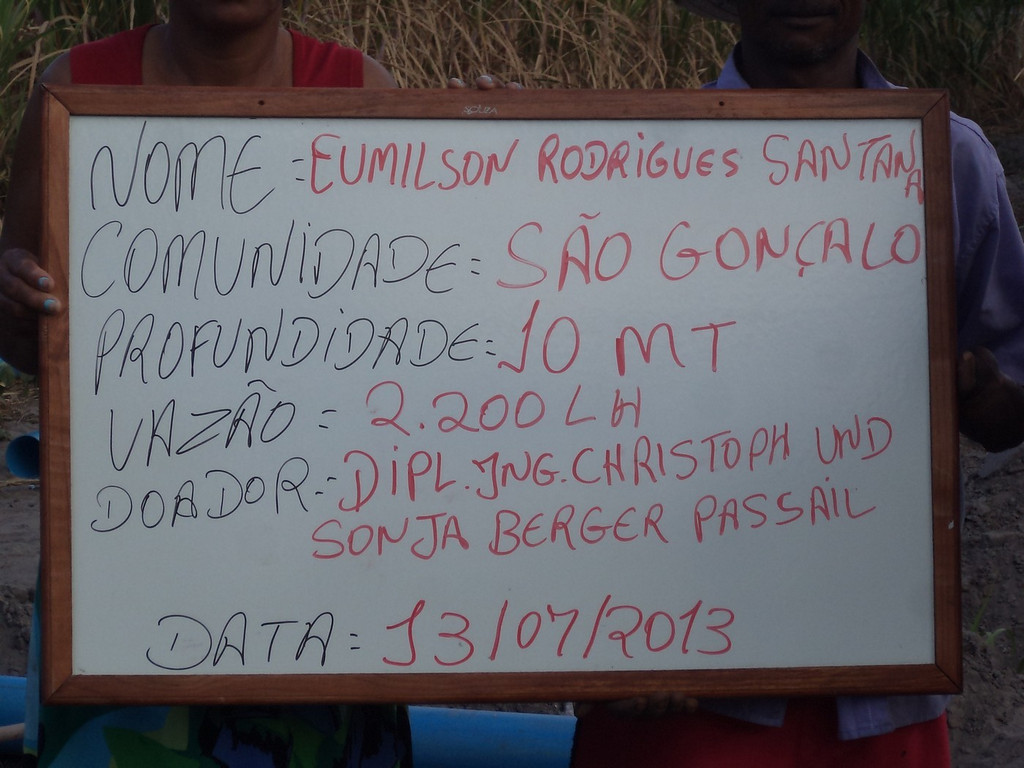 NOME: EUMILSON RODRIGUES SANTANA
COMUNIDADE: SÃO GONÇALO
PROFUNDIDADE: 10 MT
VAZÃO: 2.200 LH
DOADOR: DIPL. ING. CHRISTOPH UND
SONJA BERGER PASSAIL
DATA: 13/07/2013